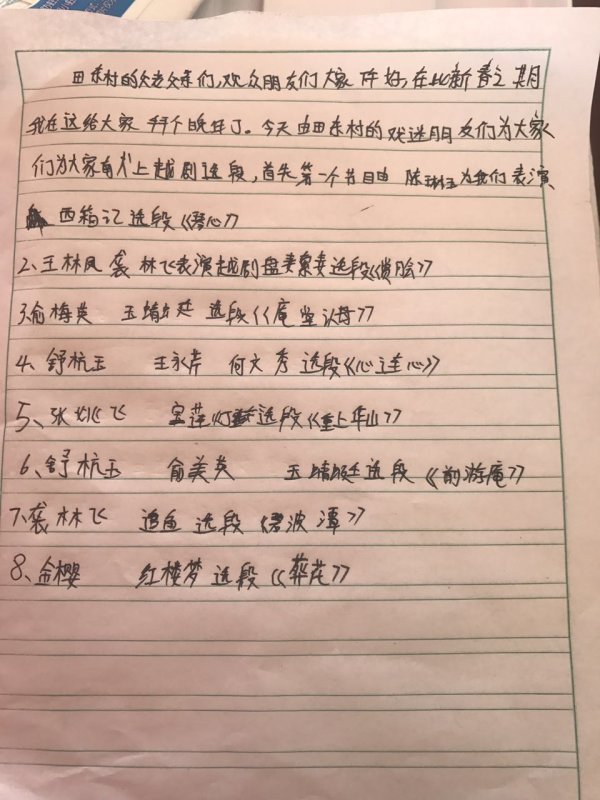 田东村的父老父亲们，观众朋友们大家下午好，在此新春之期
我在这给大家拜个晚年了。今天由田东村的戏迷朋友们为大家
们为大家献上越剧选段，首先第一个节目由 陈琳钰为我们表演
西箱记选段《琴心》
2、王林凤 袭林飞表演越剧盘妻索妻选段《赏脸》
3、俞梅英 玉蜻蜓 选段《庵堂认母》
4、舒杭玉 王永芹 何文秀选段《心连心》
5、张姚飞 宝莲灯选段《重上华山》
6、舒杭玉 俞美英 玉蜻蜓选段《前游庵》
7、袭林飞 追鱼 选段《碧波潭》
8、金樱 红楼梦选段《葬花》